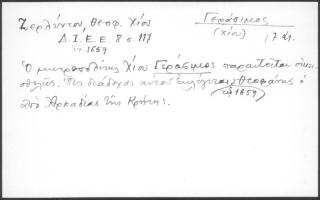 Ζερλέντου, Θεοφ. Χίου
Δ.Ι.Ε.Ε. 8 σ. 117
ἐν 1659
Γεράσιμος
(Χίου)
17 αἰ.
Ὁ μητροπολίτης Χίου Γεράσιμος παραιτεῖται οἰκει-
οθελῶς. Ὡς διάδοχος αὐτοῦ ἐκλέγεται Θεοφάνης ὁ
ἀπὸ Ἀρκαδίας τῆς Κρήτης.
ἐν 1659